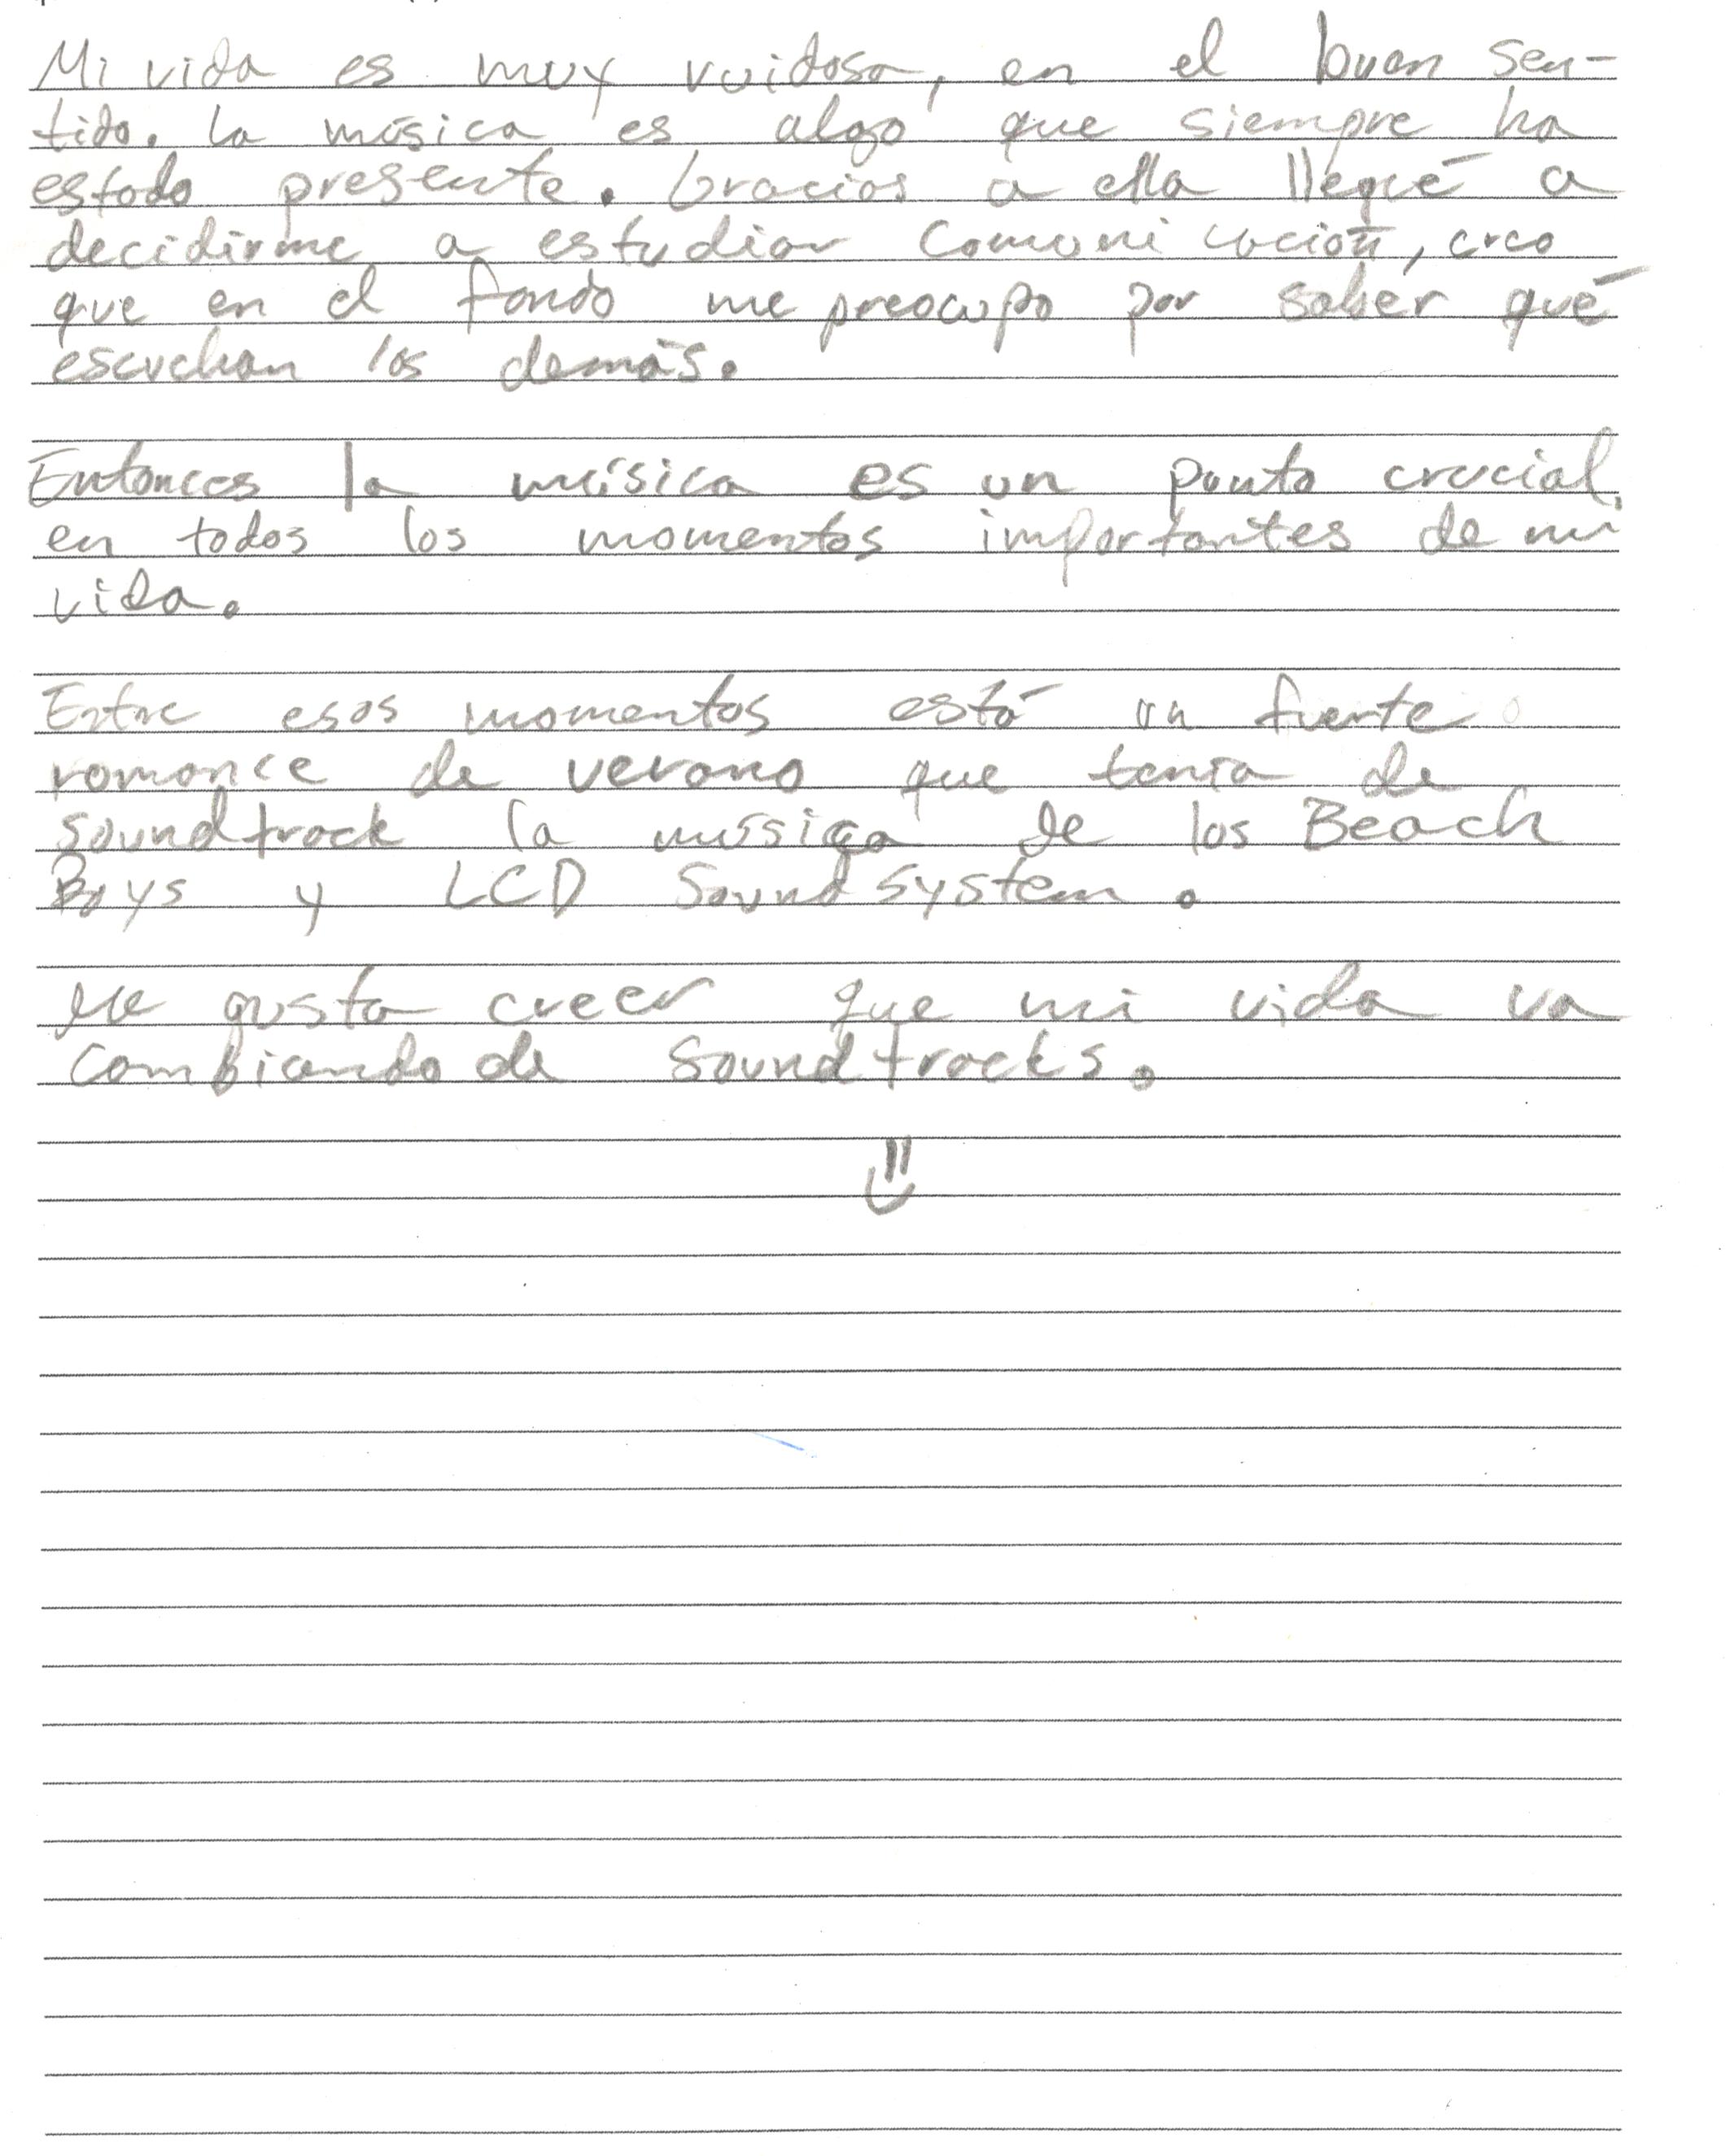 Mi vida es muy ruidosa, en el buen sen-
tido. La música es algo que siempre ha
estado presente. Gracias a ella llegué a
decidirme a estudiar Comunicación, creo
que en el fondo me preocupo por saber qué
escuchan los demás.
Entonces la música es un punto crucial
en todos los momentos importantes de mi
vida.
Entre esos momentos está un fuerte
romance de verano que tenía de
soundtrack la música de los Beach
Boys y LCD Soundsystem.
Me gusta creer que mi vida va
cambiando de soundtracks.